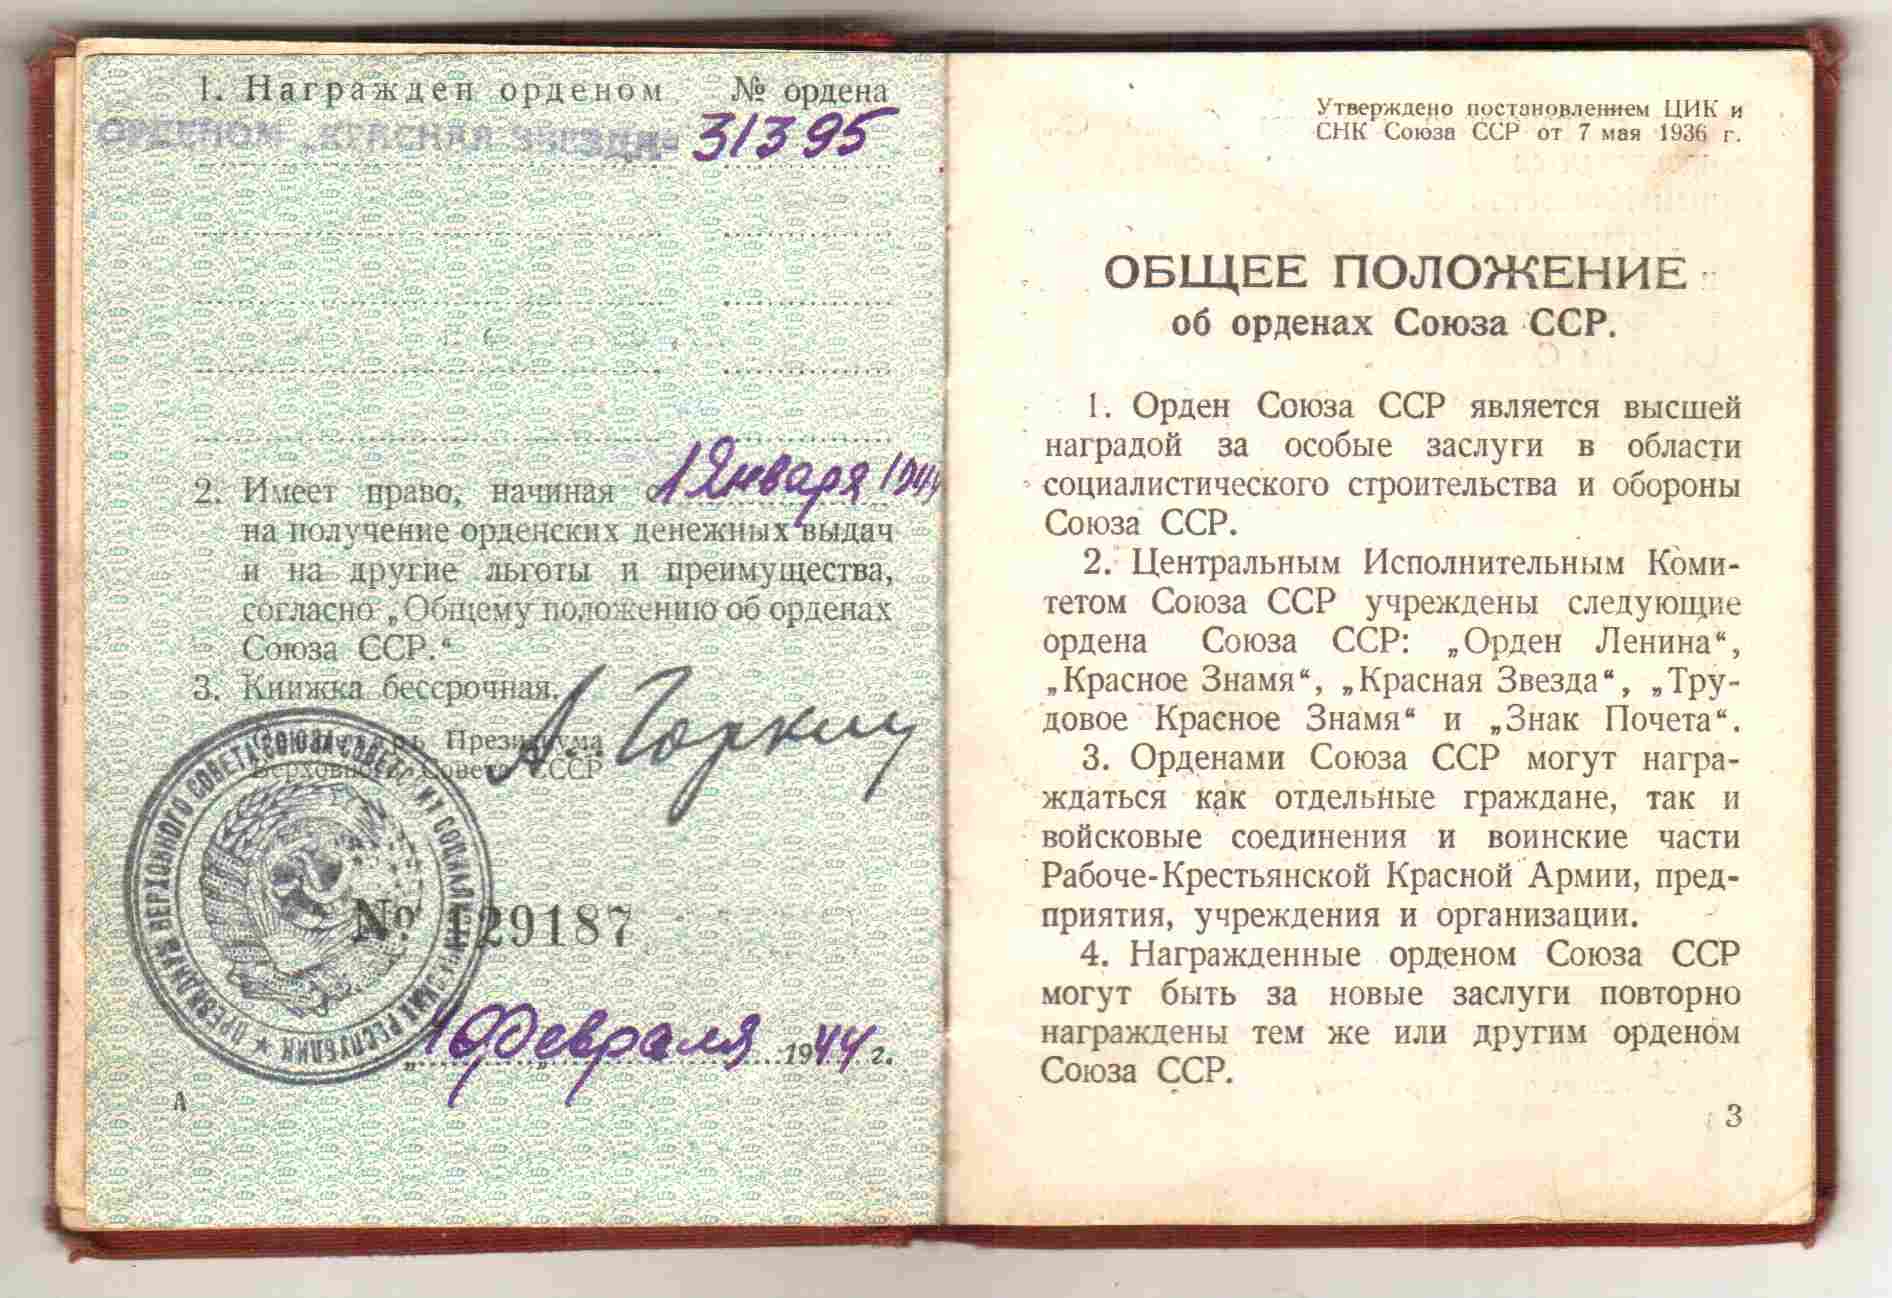 1. Награжден орденом № ордена
ОРДЕНОМ „КРАСНАЯ ЗВЕЗДА“ 31395
2. Имеет право, начиная с 1 Января 1944
на получение орденских денежных выдач
и на другие льготы и преимущества,
согласно „Общему положению об орденах
Союза ССР.“
3. Книжка бессрочная.
Президиума
Верховного Совета СССР
А. Горкин
ПРЕЗИДИУМ ВЕРХОВНОГО СОВЕТА СОЮЗА РЕСПУБЛИК
№ 129187
„16“ Февраля 1944 г.
А
Утверждено постановлением ЦИК и
СНК Союза ССР от 7 мая 1936 г.
ОБЩЕЕ ПОЛОЖЕНИЕ
об орденах Союза ССР.
1. Орден Союза ССР является высшей
наградой за особые заслуги в области
социалистического строительства и обороны
Союза ССР.
2. Центральным Исполнительным Коми-
тетом Союза ССР учреждены следующие
ордена Союза ССР: „Орден Ленина“,
„Красное Знамя“, „Красная Звезда“, „Тру-
довое Красное Знамя“ и „Знак Почета“.
3. Орденами Союза ССР могут награ-
ждаться как отдельные граждане, так и
войсковые соединения и воинские части
Рабоче-Крестьянской Красной Армии, пред-
приятия, учреждения и организации.
4. Награжденные орденом Союза ССР
могут быть за новые заслуги повторно
награждены тем же или другим орденом
Союза ССР.
3